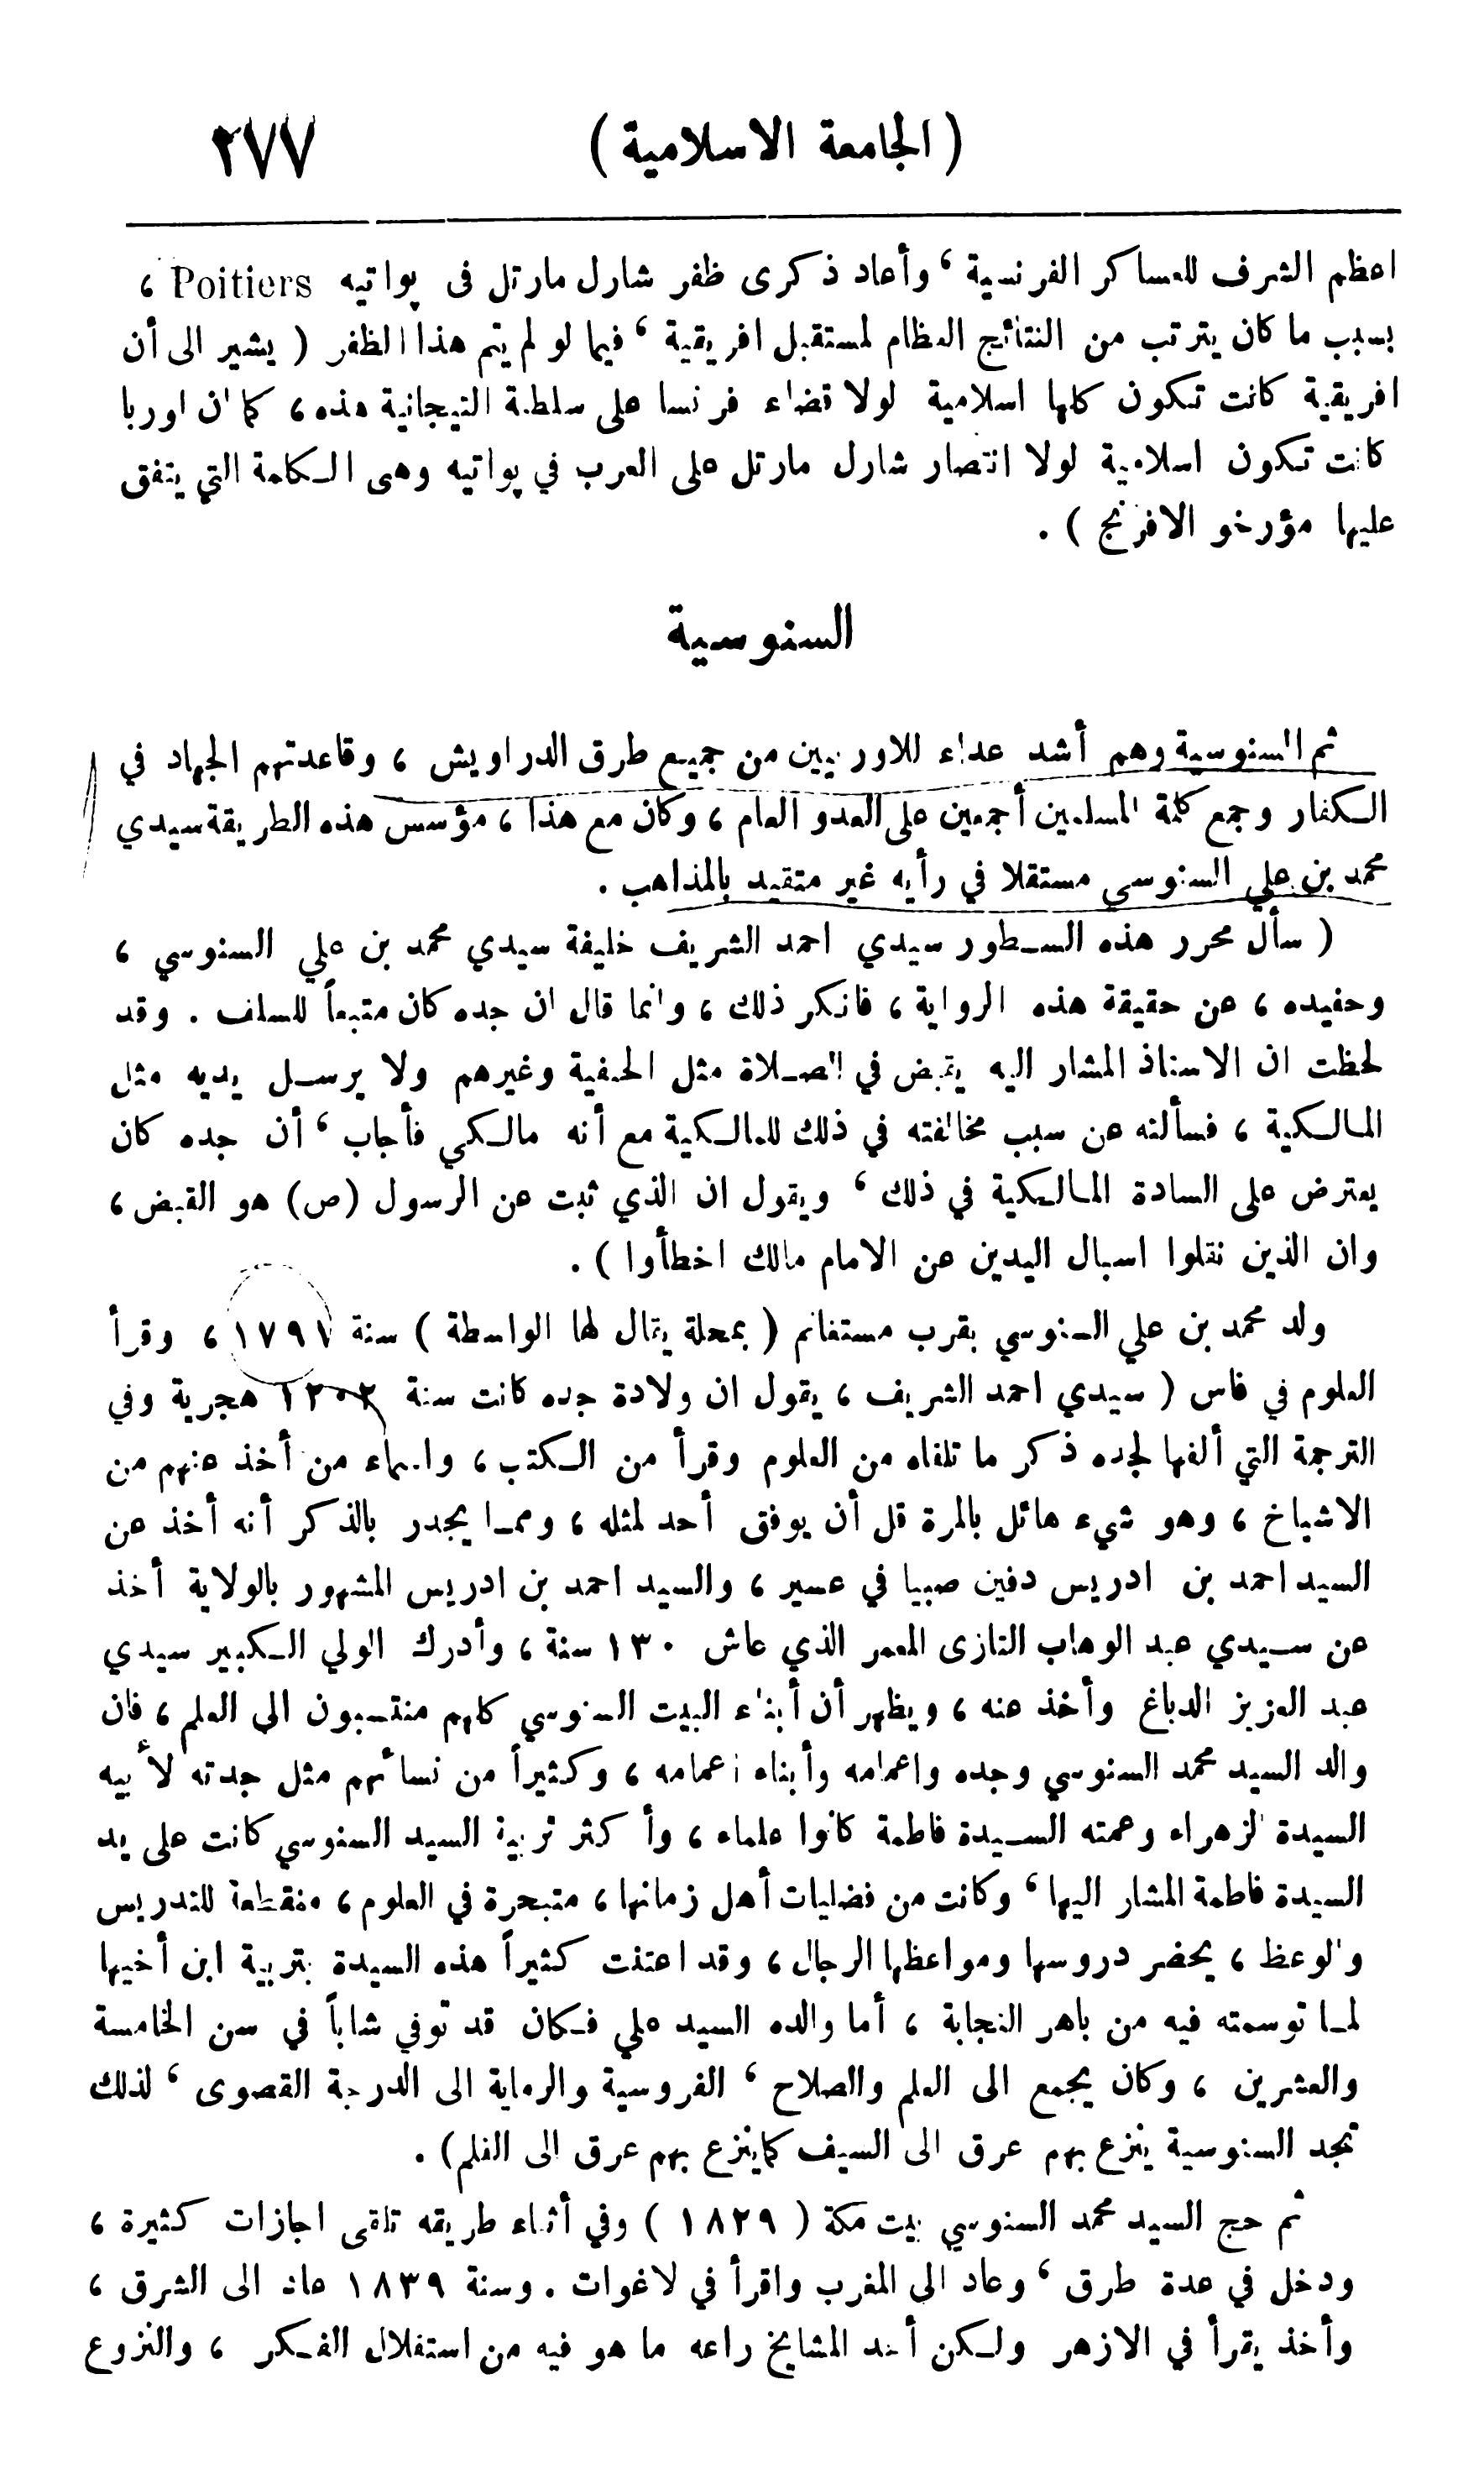 (الجامعة الاسلامية) ٢٧٧
اعظم الشرف للعساكر الفرنسية ، وأعاد ذكرى ظفر شارل مارتل فى پواتيه Poitiers ،
بسبب ما كان يترتب من النتائج العظام لمستقبل افريقية ، فيما لو لم يتم هذا الظفر ( يشير الى أن
افريقية كانت تكون كلها اسلامية لولا قضاء فرنسا على سلطة التيجانية هذه ، كما ان اوربا
كانت تكون اسلامية لولا انتصار شارل مارتل على العرب في پواتيه وهى الكلمة التي يتفق
عليها مؤرخو الافرنج ) .
السنوسية
ثم السنوسية وهم أشد عداء للاوربيين من جميع طرق الدراويش ، وقاعدتهم الجهاد في
الكفار وجمع كلمة المسلمين أجمعين على العدو العام ، وكان مع هذا ، مؤسس هذه الطريقة سيدي
محمد بن علي السنوسي مستقلا في رأيه غير متقيد بالمذاهب .
( سأل محرر هذه السطور سيدي احمد الشريف خليفة سيدي محمد بن علي السنوسي ،
وحفيده ، عن حقيقة هذه الرواية ، فانكر ذلك ، وانما قال ان جده كان متبعاً للسلف . وقد
لحظت ان الاستاذ المشار اليه يقبض في الصلاة مثل الحنفية وغيرهم ولا يرسل يديه مثل
المالكية ، فسألته عن سبب مخالفته في ذلك للمالكية مع أنه مالكي فأجاب ، أن جده كان
يعترض على السادة المالكية في ذلك ، ويقول ان الذي ثبت عن الرسول (ص) هو القبض ،
وان الذين نقلوا اسبال اليدين عن الامام مالك اخطأوا ) .
ولد محمد بن علي السنوسي بقرب مستغانم ( بمحلة يقال لها الواسطة ) سنة ١٧٩١ ، وقرأ
العلوم في فاس ( سيدي احمد الشريف ، يقول ان ولادة جده كانت سنة ١٢٠٢ هجرية وفي
الترجمة التي ألفها لجده ذكر ما تلقاه من العلوم وقرأ من الكتب ، واسماء من أخذ عنهم من
الاشياخ ، وهو شيء هائل بالمرة قل أن يوفق أحد لمثله ، ومما يجدر بالذكر أنه أخذ عن
السيد احمد بن ادريس دفين صبيا في عسير ، والسيد احمد بن ادريس المشهور بالولاية أخذ
عن سيدي عبد الوهاب التازى المعمر الذي عاش ١٣٠ سنة ، وأدرك الولي الكبير سيدي
عبد العزيز الدباغ وأخذ عنه ، ويظهر أن أبناء البيت السنوسي كلهم منتسبون الى العلم ، فان
والد السيد محمد السنوسي وجده واعمامه وأبناء أعمامه ، وكثيراً من نسائهم مثل جدته لأبيه
السيدة الزهراء وعمته السيدة فاطمة كانوا علماء ، وأكثر تربية السيد السنوسي كانت على يد
السيدة فاطمة المشار اليها ، وكانت من فضليات أهل زمانها ، متبحرة في العلوم ، منقطعة للتدريس
والوعظ ، يحضر دروسها ومواعظها الرجال ، وقد اعتنت كثيراً هذه السيدة بتربية ابن أخيها
لما توسمته فيه من باهر النجابة ، أما والده السيد علي فكان قد توفي شاباً في سن الخامسة
والعشرين ، وكان يجمع الى العلم والصلاح ، الفروسية والرماية الى الدرجة القصوى ، لذلك
تجد السنوسية ينزع بهم عرق الى السيف كما ينزع بهم عرق الى القلم) .
ثم حج السيد محمد السنوسي بيت مكة ( ١٨٢٩ ) وفي أثناء طريقه تلقى اجازات كثيرة ،
ودخل في عدة طرق ، وعاد الى المغرب واقرأ في لاغوات . وسنة ١٨٣٩ عاد الى الشرق ،
وأخذ يقرأ في الازهر ولكن أحد المشايخ راعه ما هو فيه من استقلال الفكر ، والنزوع